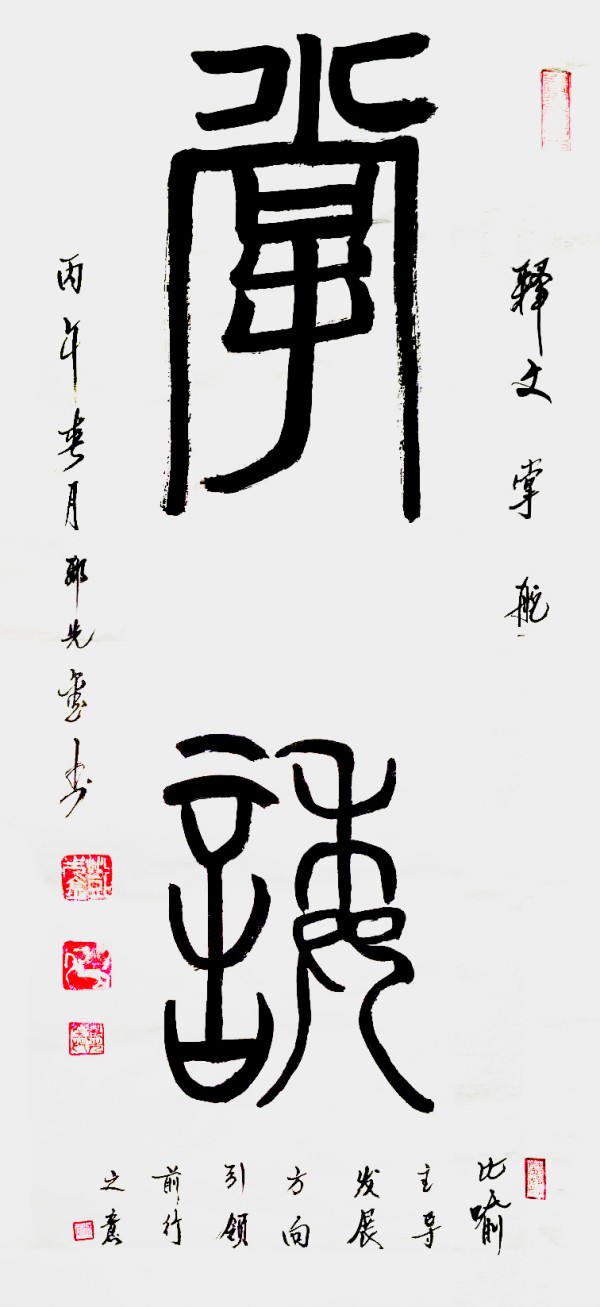 释文 掌 舵
掌諉
丙午春月 先 书
比喻
主导
发展
方向
引领
前行
之意